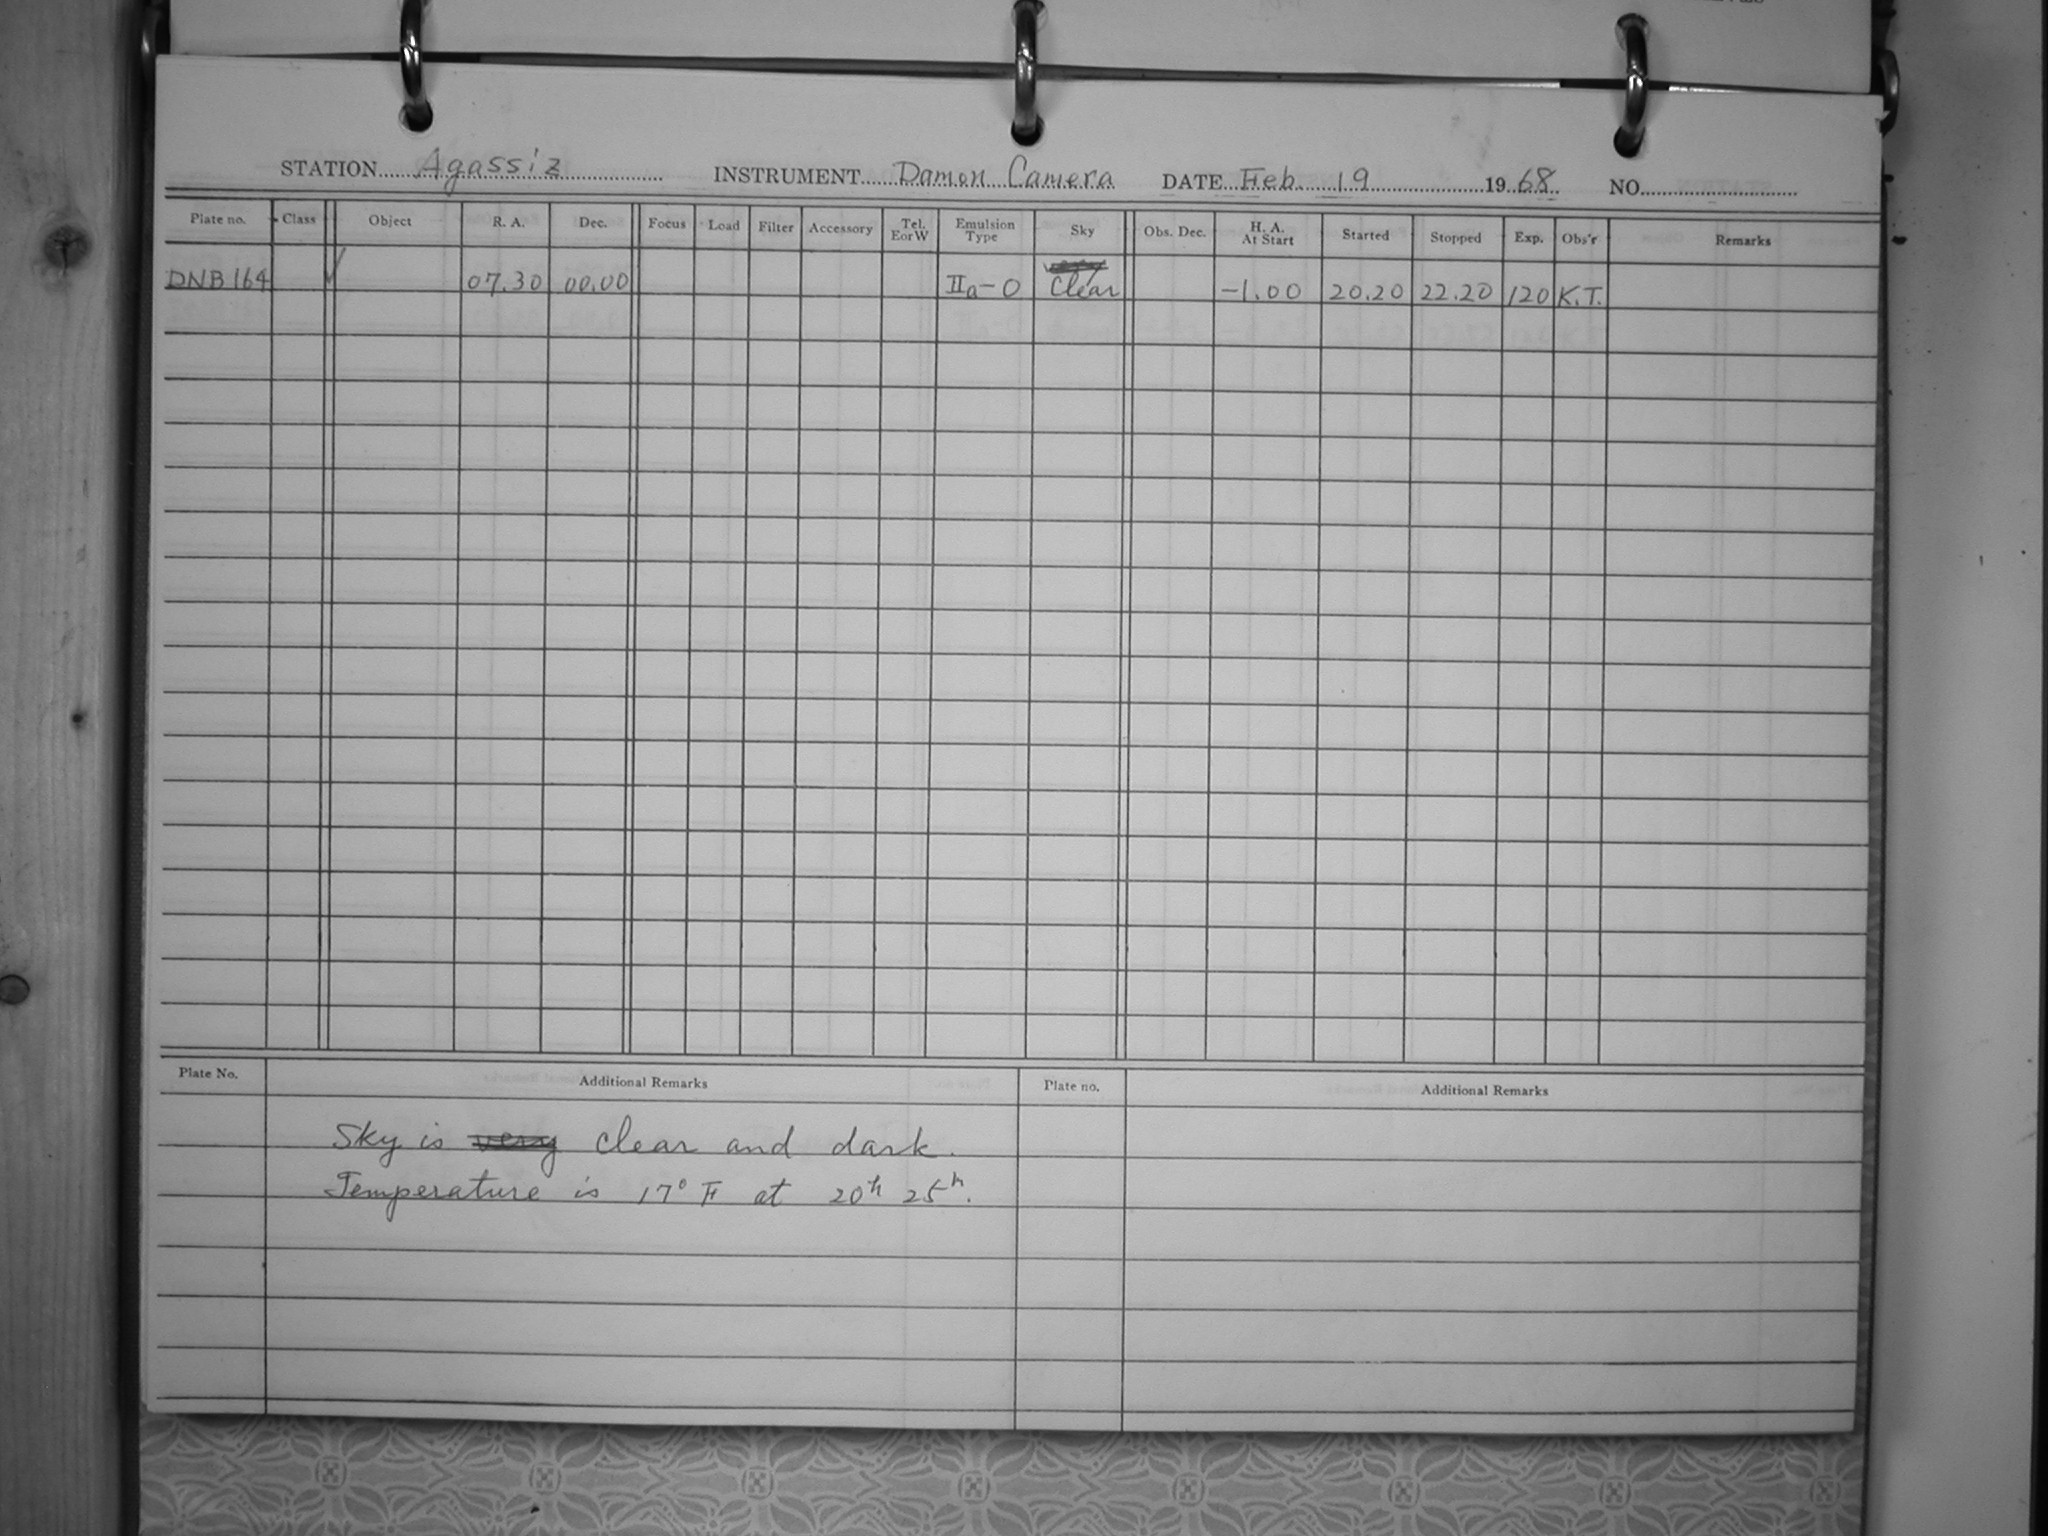 STATION Agassiz INSTRUMENT Damon Camera DATE Feb. 19 1968 NO.
Plate no. Class Object R. A. Dec. Focus Load Filter Accessory Tel. E or W Emulsion Type Sky Obs. Dec. H. A. At Start Started Stopped Exp. Obs'r Remarks
DNB 164 ✓ 07.30 00.00 IIa-O Clear -1.00 20.20 22.20 120 K.T.
Plate No. Additional Remarks Plate no. Additional Remarks
Sky is very clear and dark.
Temperature is 17° F at 20h 25m.